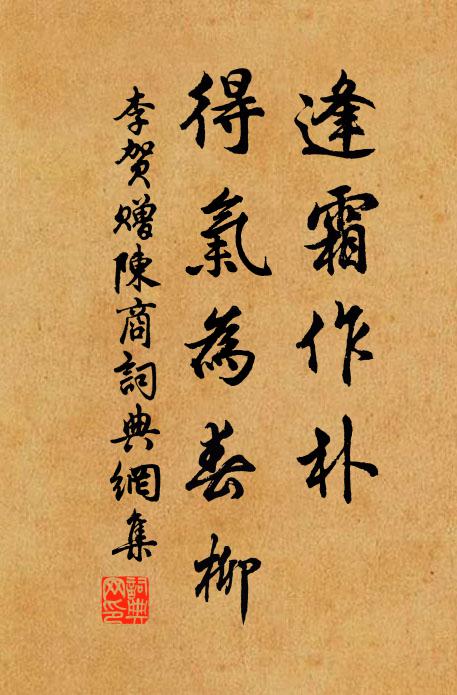 逢霜作朴
得氣為春柳
李贺贈陳商詞典網集
詞典网印